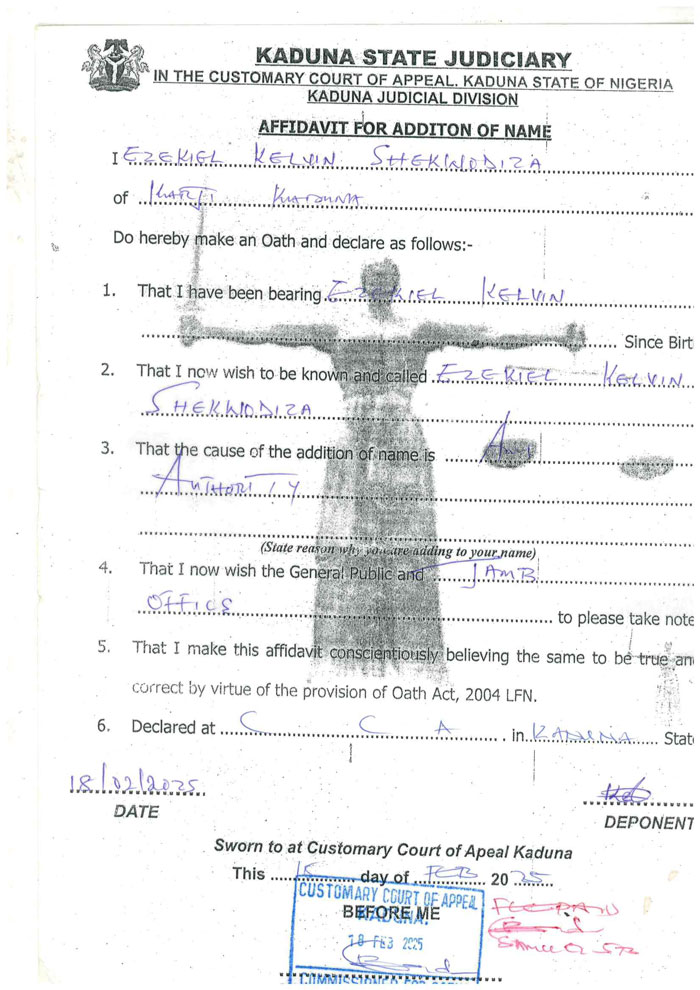 KADUNA STATE JUDICIARY
IN THE CUSTOMARY COURT OF APPEAL. KADUNA STATE OF NIGERIA
KADUNA JUDICIAL DIVISION
AFFIDAVIT FOR ADDITON OF NAME
I EZEKIEL KELVIN SHEKWODIZA
of KARJI KADUNA
Do hereby make an Oath and declare as follows:-
1. That I have been bearing EZEKIEL KELVIN
Since Birt
2. That I now wish to be known and called EZEKIEL KELVIN
SHEKWODIZA
3. That the cause of the addition of name is Any
AUTHORITY
(State reason why you are adding to your name)
4. That I now wish the General Public and JAMB
OFFICE to please take note
5. That I make this affidavit conscientiously believing the same to be true an
correct by virtue of the provision of Oath Act, 2004 LFN.
6. Declared at C C A in KADUNA State
18/02/2025
DATE
DEPONENT
Sworn to at Customary Court of Apeal Kaduna
This day of FEB 2025
CUSTOMARY COURT OF APPEAL
KADUNA.
BEFORE ME
18 FEB 2025